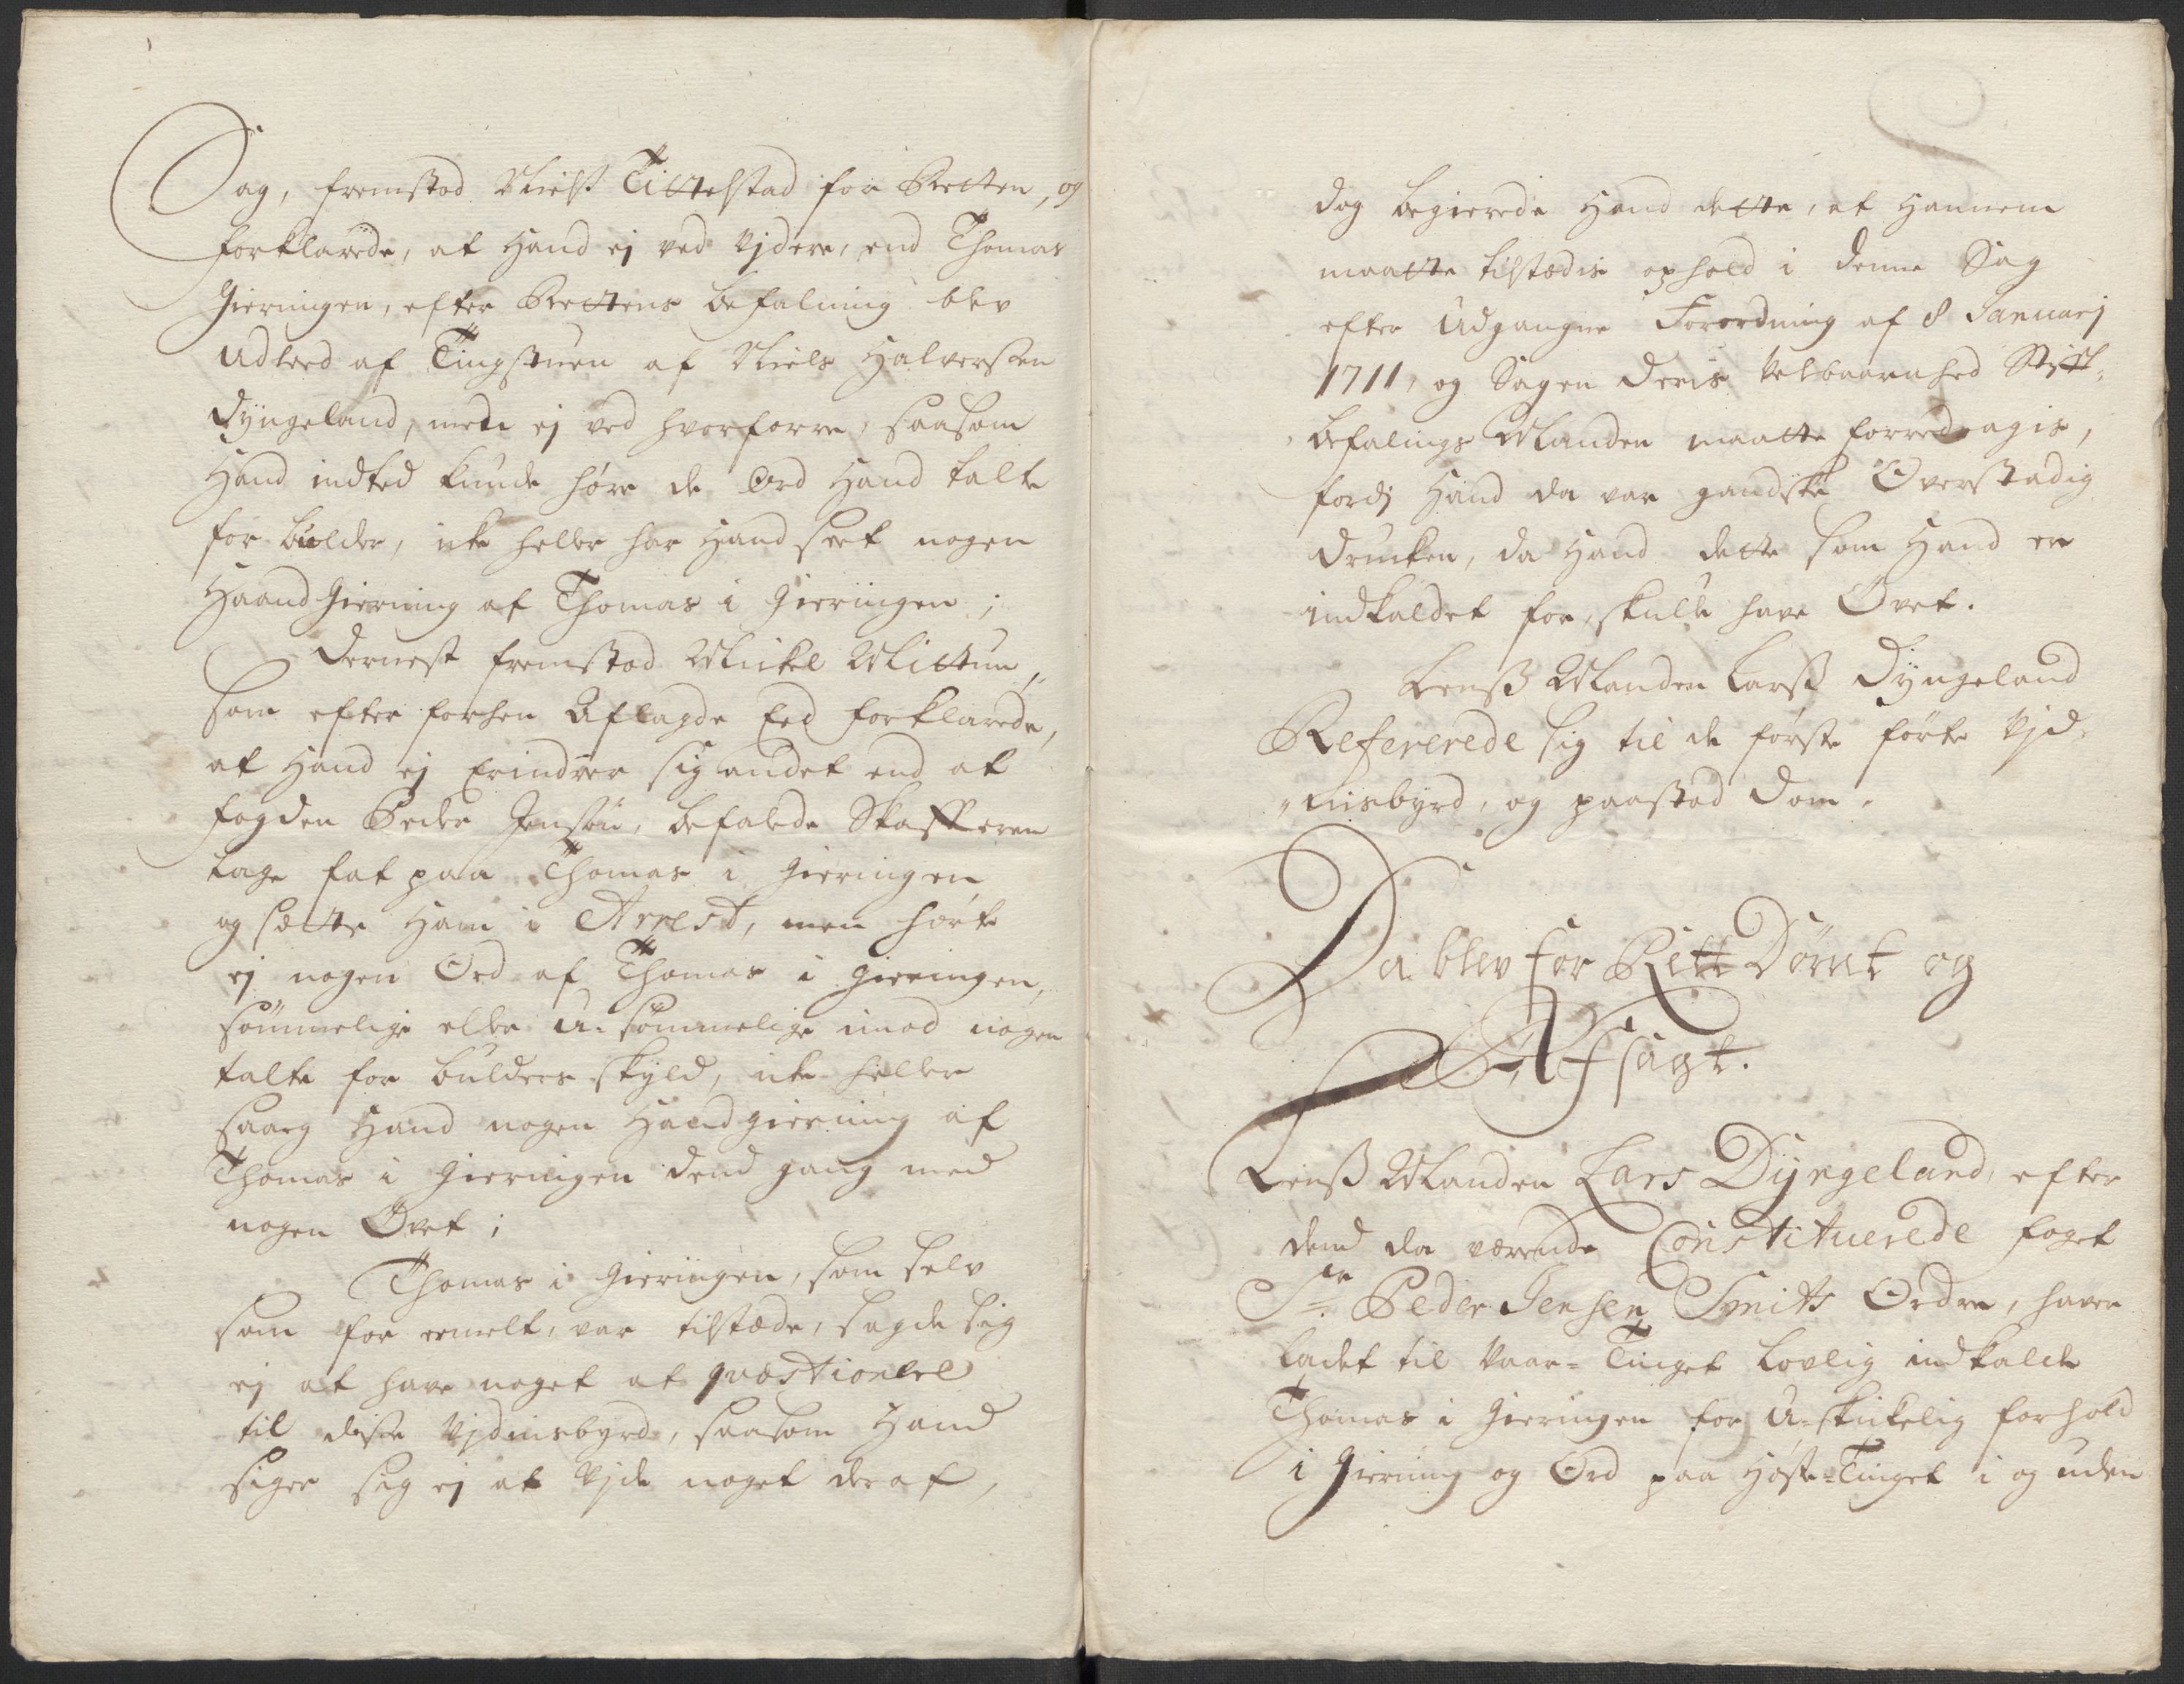 Sag, fremstod Nielß Tittelstad for Retten, og
forklarede, at Hand ej ved vjdere, end Thomas
Gieringen, efter Rettens befalning blev
udleed af Tingstuen af Niels Halversen
Dÿngeland, mens ej ved hvorforre, saasom
Hand indted kunde høre de Ord Hand talte
for bulder, icke heller har Hand seet nogen
Haand gierning af Thomas i Gieringen;
Dernest fremstod Mickel Mittun,
som efter forhen Aflagde Eed forklarede,
at Hand ej Erindrer sig andet end at
fogden Peder Jensøn, befalede Skafferen
tage fat paa Thomas i Gieringen
og sætte Ham i Arrest, men hørte
ej nogen Ord af Thomas i Gieringen,
sømmelige eller u-sømmelige imod nogen
talte for bulders skyld, icke heller
saaeg Hand nogen Haandgierning af
Thomas i Gieringen dend gang med
nogen Øvet;
Thomas i Gieringen, som selv
som for ermelt, var tilstæde, sagde sig
ej at have noget at qvæstionere
til disse vjdnisbyrd, saasom Hand
siger sig ej at vjde noget deraf,
dog begierede Hand dette, at Hannem
maatte tilstædis ophold i denne Sag
efter Udgangne Forordning af 8 Januarj
1711, og Sagen Deris Velbaarnhed Stift-
befalings Manden maatte forredragis,
fordj Hand da var gandske Overstadig
drucken, da Hand dette som Hand er
indkaldet for, skulle have Øvet.
Lenß Manden Larß Dÿngeland
Refererede sig til de første førte vjd-
nisbyrd, og paastod Dom.
Da blev for Rett Dømt og
Afsagt.
Lenß Manden Lars Dÿngeland, efter
dend da værende Constituerede foget
Sr. Peder Jensen Smits Ordre, haver
ladet til Vaar-Tinget lovlig indkalde
Thomas i Gieringen for U-skickelig forhold
i Gierning og Ord paa Høste-Tinget i og uden